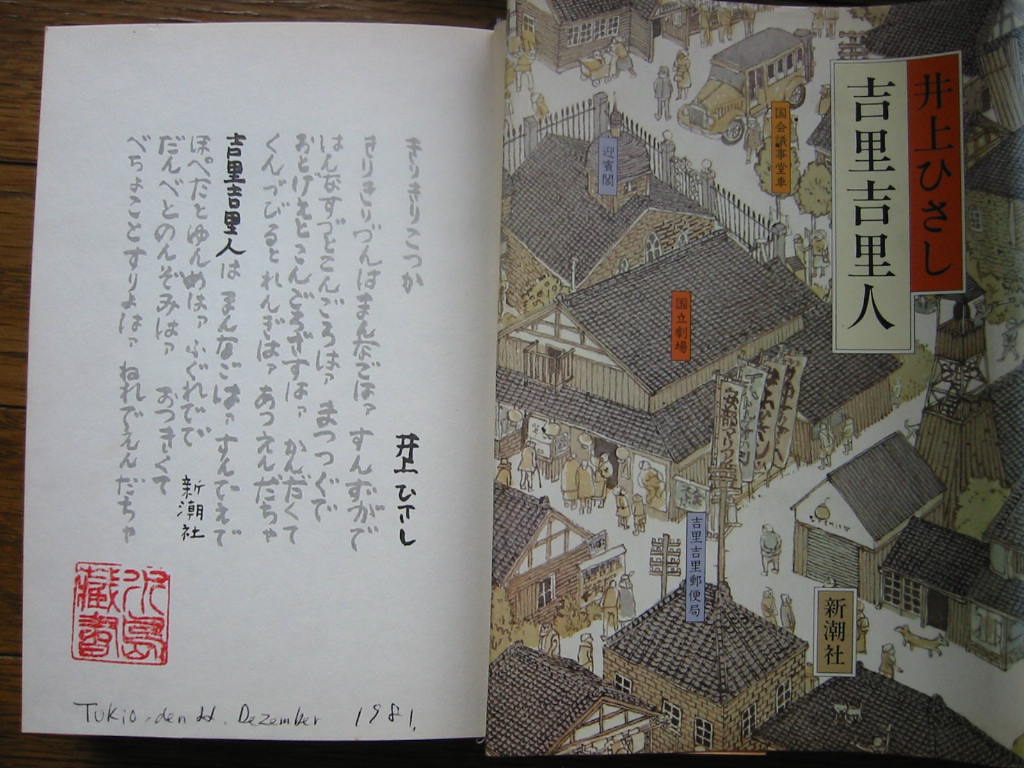 きりきりこつか
井上ひさし
きりきりづんはまんなごはァ すんずがで
はんなすづとこんごろはァ まつつぐで
おとげえとこんごろざすはァ かんだくて
くんつびるとれんぎはァ あつえんだちゃ
吉里吉里人は まんなごはァ すんでえで
ほぺたとゆんめはァ ふぐれでで
だんべとのんぞみはァ おつきくて
べちょことすりよはァ ねれでえんだちゃ
新潮社
小島
藏書
Tokio, den 11. Dezember 1981.
井上ひさし
吉里吉里人
国会議事堂車
迎賓閣
国立劇場
吉里吉里郵便局
新潮社